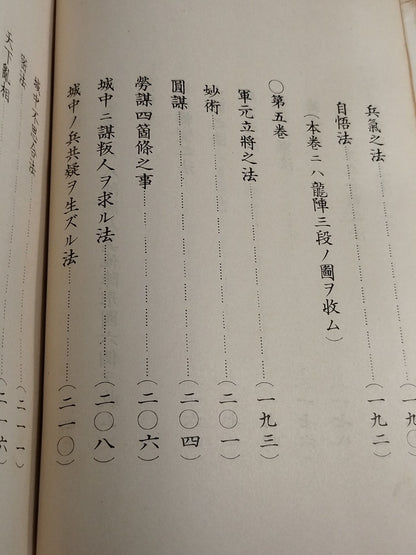 兵氣之法……(一九〇)
自悟法……(一九二)
(本卷ニハ龍陣三段ノ圖ヲ收ム)
〇第五卷
軍元立將之法……(一九三)
妙術……(二〇一)
圓謀……(二〇四)
勞謀四箇條之事……(二〇六)
城中ニ謀叛人ヲ求ル法……(二〇八)
城中ノ兵共疑ヲ生ズル法……(二一〇)
(二一一)
(二一六)